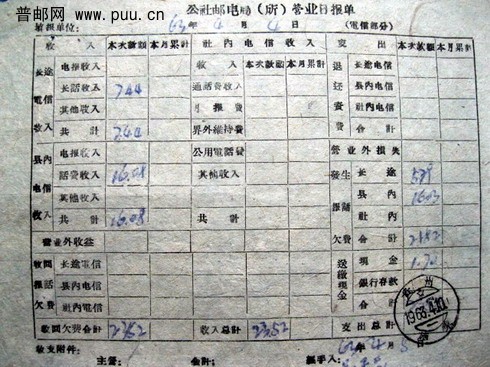 普邮网 www.puu.cn
公社邮电局(所)营业日报单
填报单位: 63年4月4日 (電信部分)
收入 本次款額 本月累計 社內電信收入 支出 本次款額 本月累計
长途電信收入 电报收入 收入 本次款額 本月累計 退还資費 长途电信
长話收入 7.44 通話費收入 县内电信
其他收入 月租費 社内电信
共計 7.44 界外維持費 合計
县内电信收入 电报收入 公用電話費 营业外損失
話費收入 16.08 其他收入 發生 长途
其他收入 县内
共計 16.08 共計 社內
营业外收益 欠費 合計
收回 长途電信 送繳現金 現金
县内電信 銀行存款
欠費 社內電信 合計
收回欠費合計 23.52 收入总計 23.52 支出总計
收支附件: 63 4 5
主管: 会計: 經手人:
1963.4.